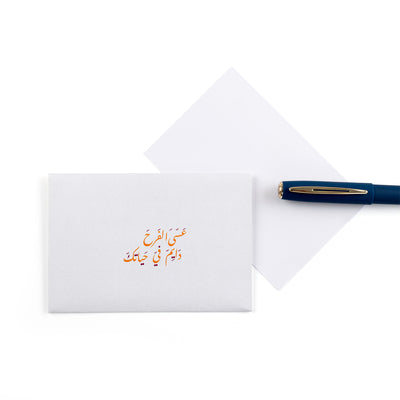 عَسَى الفَرَحَ
دَايِمَ فيَ حَيَاتكَ